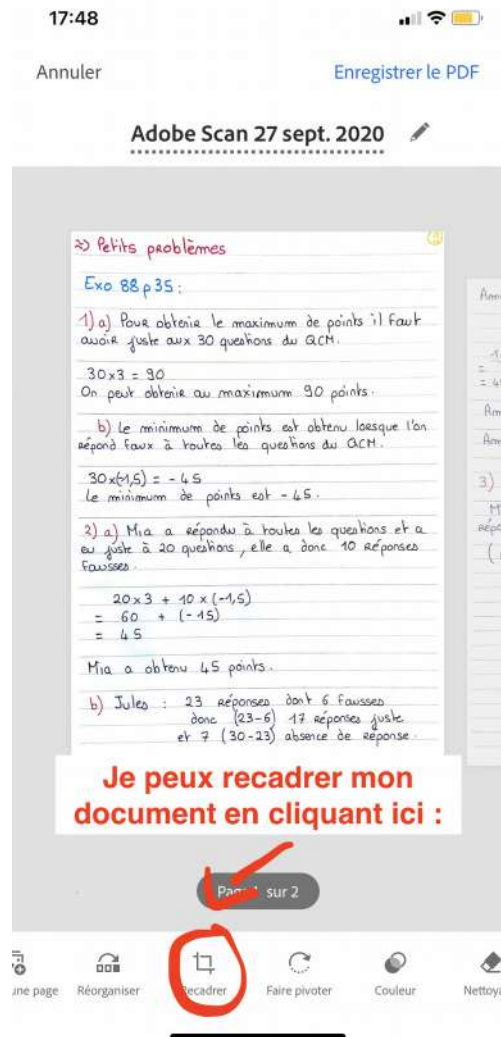 17:48
Annuler
Enregistrer le PDF
Adobe Scan 27 sept. 2020
Petits problèmes
Exo 88 p 35 :
1) a) Pour obtenir le maximum de points il faut
avoir juste aux 30 questions du QCM.
30x3 = 90
On peut obtenir au maximum 90 points.
b) Le minimum de points est obtenu lorsque l'on
répond faux à toutes les questions du QCM.
30x(-1,5) = -45
Le minimum de points est -45.
2) a) Mia a répondu à toutes les questions et a
eu juste à 20 questions, elle a donc 10 réponses
fausses.
20 x 3 + 10 x (-1,5)
= 60 + (-15)
= 45
Mia a obtenu 45 points.
b) Jules : 23 réponses dont 6 fausses
donc (23-6) 17 réponses juste
et 7 (30-23) absence de réponse.
3)
Je peux recadrer mon
document en cliquant ici :
sur 2
une page
Réorganiser
Recadrer
Faire pivoter
Couleur